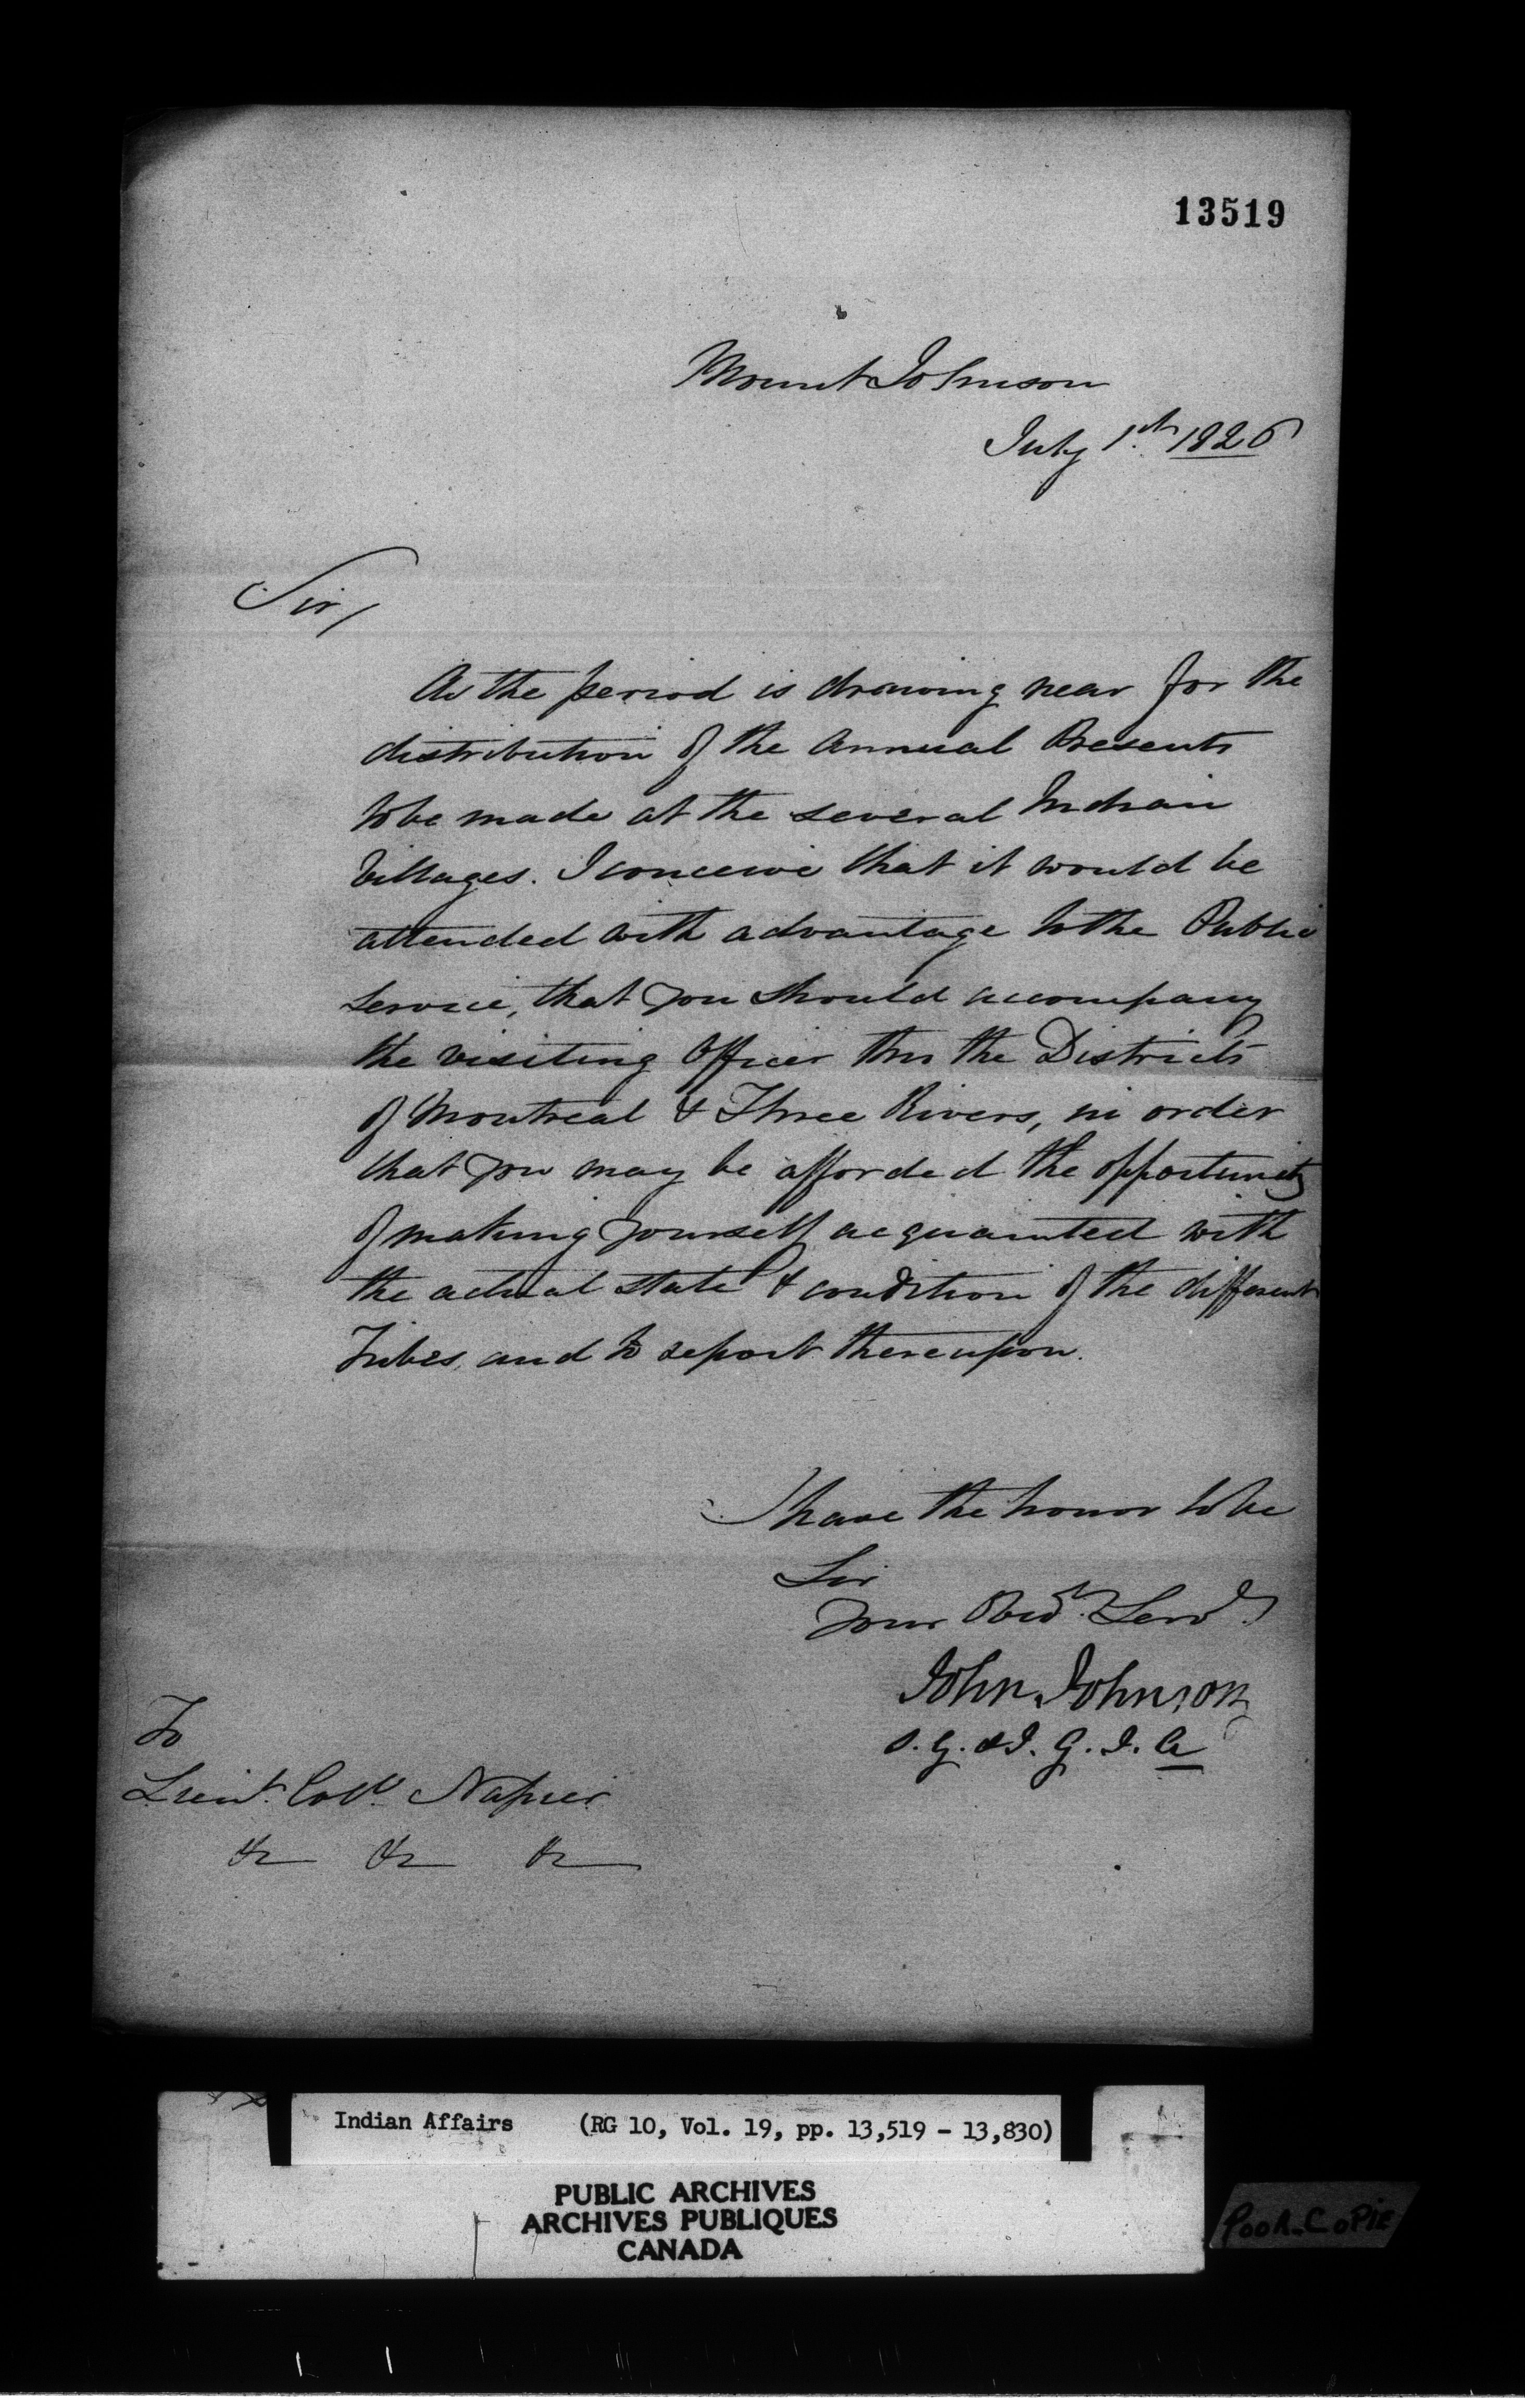 13519
Mount Johnson
July 1st 1826
Sir,
As the period is drawing near for the
distribution of the Annual Presents
to be made at the several Indian
Villages. I conceive that it would be
attended with advantage to the Public
Service, that you should accompany
the visiting Officer thro the Districts
of Montreal & Three Rivers, in order
that you may be afforded the opportunity
of making yourself acquainted with
the actual state & condition of the different
Tribes, and to report thereupon.
I have the honor to be
Sir
Your Obedt Servt
John Johnson
S. G. & I. G. I. A
To
Lieut. Coll. Napier
&c &c &c
Indian Affairs (RG 10, Vol. 19, pp. 13,519 - 13,830)
PUBLIC ARCHIVES
ARCHIVES PUBLIQUES
CANADA
POOR COPIE